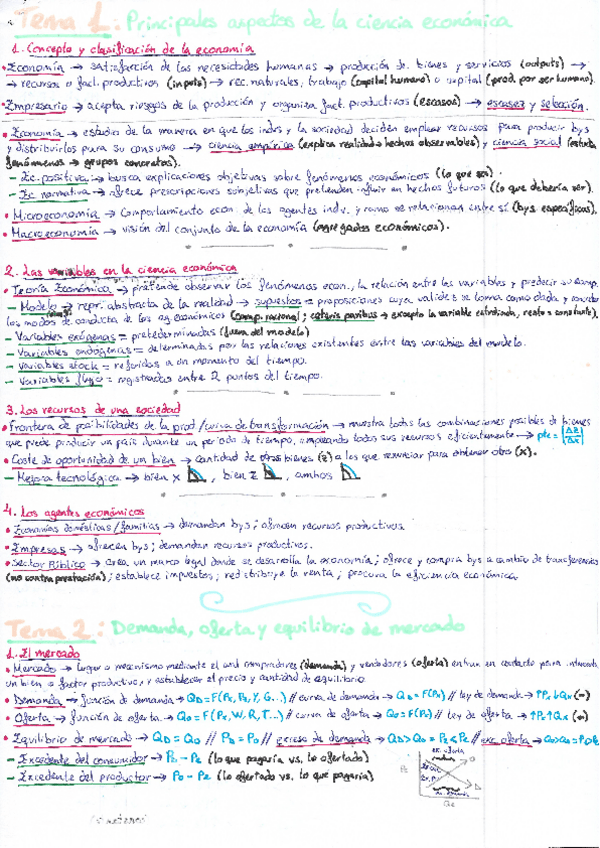 Tema 1: Principales aspectos de la ciencia económica
1. Concepto y clasificación de la economía
• Economía → satisfacción de las necesidades humanas → producción de bienes y servicios (outputs) →
→ recursos o fact. productivos (inputs) → rec. naturales, trabajo (capital humano) o capital (prod. por ser humano).
• Empresario → acepta riesgos de la producción y organiza fact. productivos (escasos) → escasez y selección.
• Economía → estudio de la manera en que los indvs y la sociedad deciden emplear recursos para producir bys
y distribuirlos para su consumo → ciencia empírica (explica realidad o hechos observables) y ciencia social (estudia
fenómenos → grupos concretos).
- Ec. positiva → busca explicaciones objetivas sobre fenómenos económicos (lo que es).
- Ec. normativa → ofrece prescripciones subjetivas que pretenden influir en hechos futuros (lo que debería ser).
• Microeconomía → comportamiento econ. de los agentes indv. y como se relacionan entre sí (bys específicos).
• Macroeconomía → visión del conjunto de la economía (agregados económicos).
2. Las variables en la ciencia económica
• Teoría Económica → pretende observar los fenómenos econ., la relación entre las variables y predecir su comp.
- Modelo → repr. abstracta de la realidad → supuestos = proposiciones cuya validez se toma como dada y
los modos de conducta de los ag. económicos (comp. racional; ceteris paribus → excepto la variable estudiada, resto = constante).
- Variables exógenas = predeterminadas (fuera del modelo)
- Variables endógenas = determinadas por las relaciones existentes entre las variables del modelo.
- Variables stock = referidas a un momento del tiempo.
- Variables flujo = registradas entre 2 puntos del tiempo.
3. Los recursos de una sociedad
• Frontera de posibilidades de la prod/curva de transformación → muestra todas las combinaciones posibles de bienes
que puede producir un país durante un periodo de tiempo, empleando todos sus recursos eficientemente → pte = |ΔZ/ΔX|
• Coste de oportunidad de un bien → cantidad de otros bienes (z) a los que renunciar para obtener otro (x).
- Mejora tecnológica → bien x, bien z, ambos
4. Los agentes económicos
• Economías domésticas/familias → demandan bys; ofrecen recursos productivos.
• Empresas → ofrecen bys; demandan recursos productivos.
• Sector Público → crea un marco legal donde se desarrolla la economía; ofrece y compra bys a cambio de transferencias
(no contraprestación); establece impuestos; redistribuye la renta; procura la eficiencia económica
Tema 2: Demanda, oferta y equilibrio de mercado
1. El mercado
• Mercado → lugar o mecanismo mediante el cual compradores (demanda) y vendedores (oferta) entran en contacto para
un bien o factor productivo, y establecer el precio y cantidad de equilibrio.
• Demanda → función de demanda → QD = F(Px, Pz, Y, G...) // curva de demanda → QD = F(Px) // ley de demanda → ↑Px ↓Qx (-)
• Oferta → función de oferta → QO = F(Px, W, R, T...) // curva de oferta → QO = F(Px) // ley de oferta → ↑Px ↑Qx (+)
• Equilibrio de mercado → QD = QO // PD = PO // exceso de demanda → QD > QO // exc. oferta →
- Excedente del consumidor → PD - PE (lo que pagaría vs. lo ofertado)
- Excedente del productor → PO - PE (lo ofertado vs. lo que pagaría)
ex. oferta
PE
QE